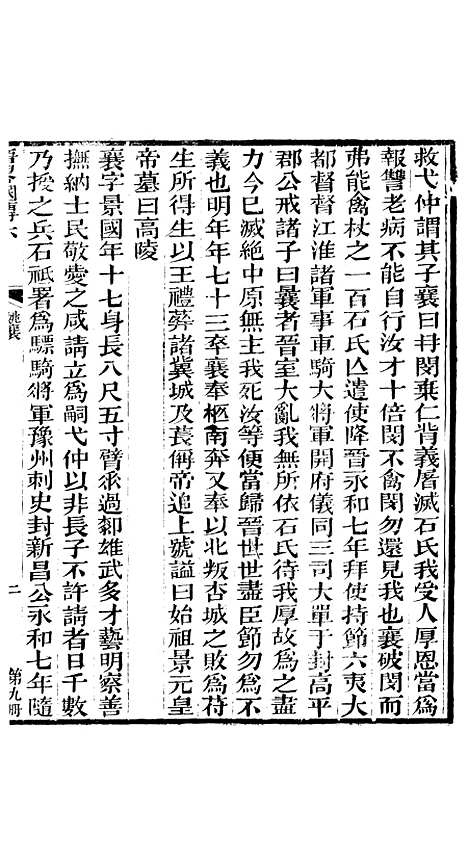 救弋仲謂其子襄曰冉閔棄仁背義屠滅石氏我受人厚恩當爲
報讐老病不能自行汝才十倍閔不禽閔勿還見我也襄破閔而
弗能禽杖之一百石氏亾遣使降晉永和七年拜使持節六夷大
都督督江淮諸軍事車騎大將軍開府儀同三司大單于封高平
郡公戒諸子曰曩者晉室大亂我無所依石氏待我厚故爲之盡
力今巳滅絕中原無主我死汝等便當歸晉世世盡臣節勿爲不
義也明年年七十三卒襄奉柩南奔又奉以北叛杏城之敗爲苻
生所得生以王禮葬諸冀城及萇僭帝追上號謚曰始祖景元皇
帝墓曰高陵
襄字景國年十七身長八尺五寸臂垂過郄雄武多才藝明察善
撫納士民敬愛之咸請立爲嗣弋仲以非長子不許請者日千數
乃授之兵石祇署爲驃騎將軍豫州刺史封新昌公永和七年隨
國傳六
姚襄
二
第九册